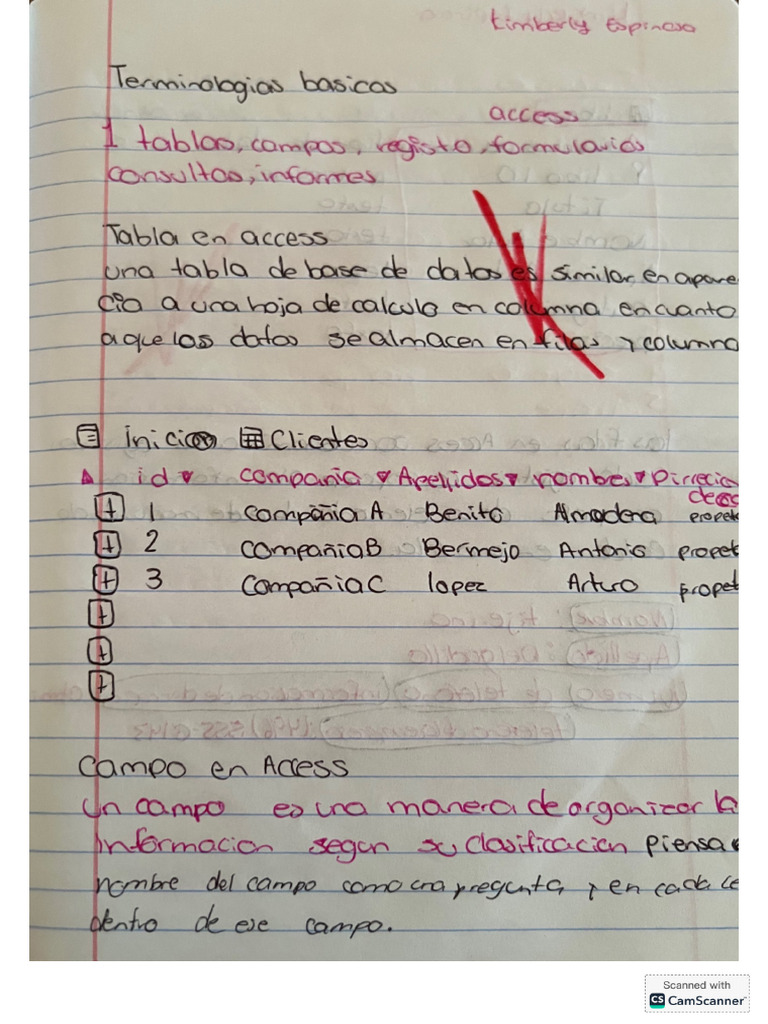 Kimberly Espinosa
Terminologias basicas
access
1 tablas, campos, registo, formularios
consultas, informes
Tabla en access
una tabla de base de datos es similar en apare
cia a una hoja de calculo en columna en cuanto
a que los datos se almacen en filas y columna
Inicio Clientes
id compania Apellidos nombre Dirrecio
de co
1 compañia A Benito Almadera propet
2 compañia B Bermejo Antonio propet
3 compañia C lopez Arturo propet
Campo en Access
Un campo es una manera de organizar la
informacion segun su clasificacion piensa
nombre del campo como una pregunta y en cada ce
dentro de ese campo.
Scanned with
CS CamScanner